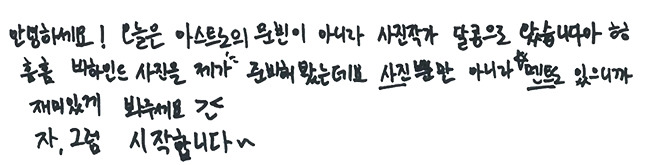 안녕하세요! 오늘은 아스트로의 문빈이 아니라 사진작가 달콩으로 왔습니다아 ㅎㅎ
흠흠 비하인드 사진을 제가 준비해 봤는데요 사진 뿐만 아니라 멘트도 있으니까
재미있게 봐주세요 ><
자, 그럼 시작합니다~